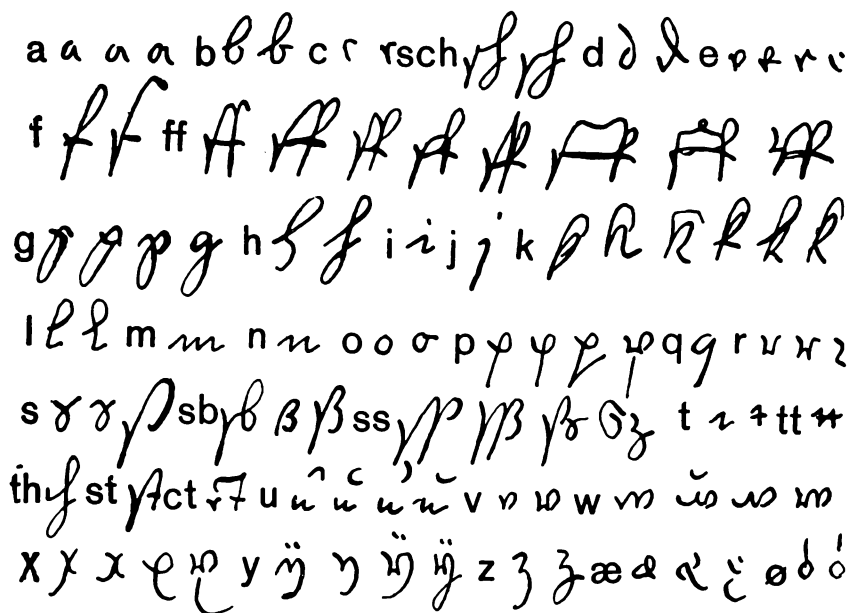 a a a a b b b c c c sch sch sch d d d e e e e e
f f f ff ff ff ff ff ff ff ff ff
g g g g g h h h i i j j k k k k k k k
l l l m m n n o o o p p p p p q q r r r r
s s s s sb sb ß ß ss ss ss ß sz t t t tt tt
th th st st ct ct u û u u ŭ v v v w w w w w
x x x x x y ÿ y ÿ ÿ z z z æ æ æ æ ø ø ø